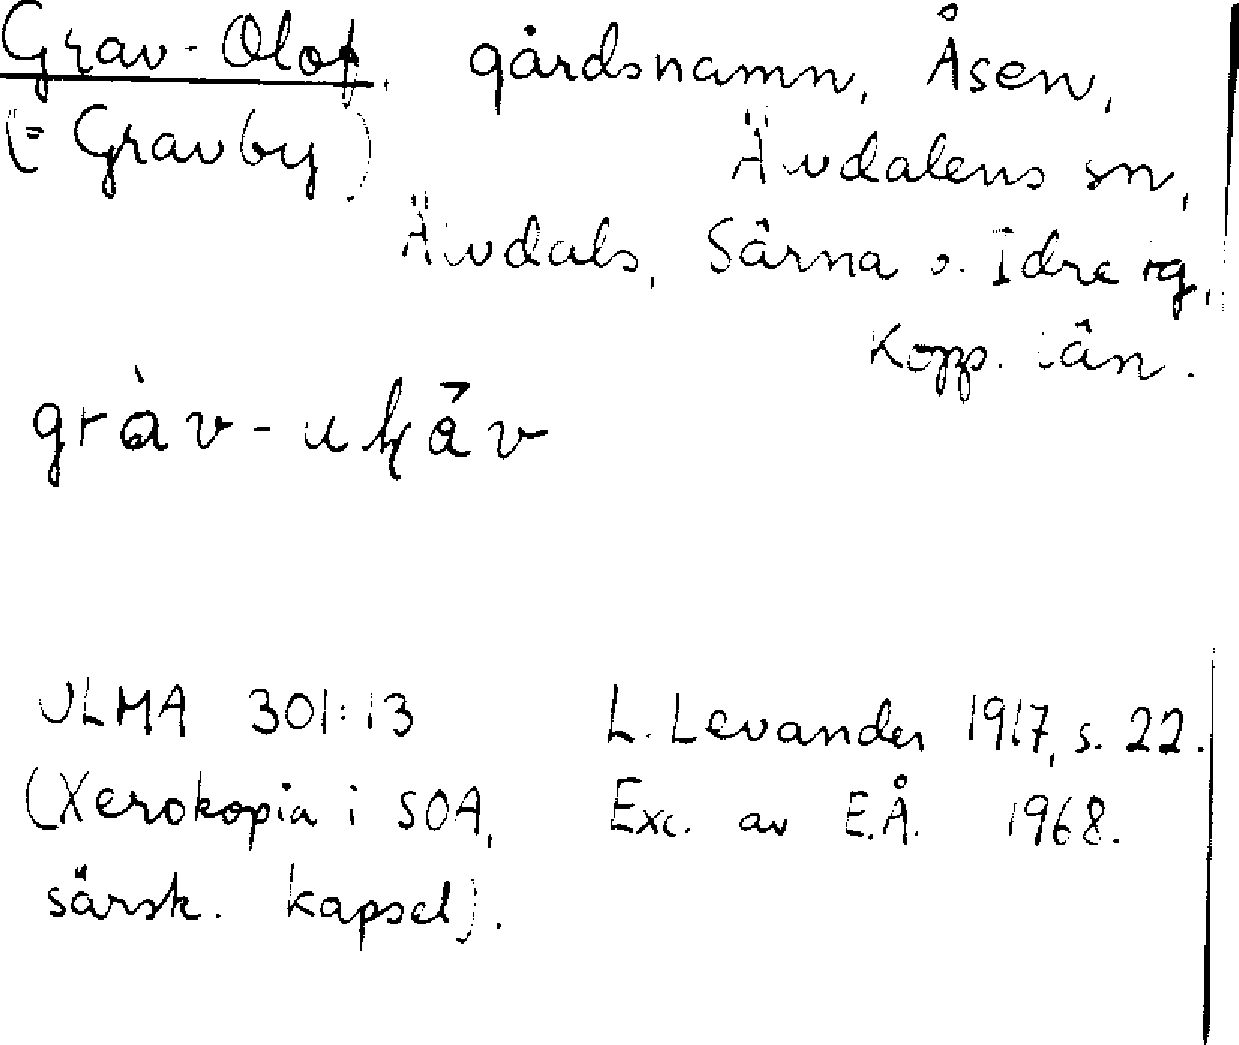 Grav-Olof, gårdsnamn, Åsen,
(= Gravby) Älvdalens sn,
Älvdals, Särna o. Idre tg,
Kopp. län.
gràv-
ULMA 301:13 L. Levander 1917, s. 22.
(Xerokopia i SOA, Exc. av E.Å. 1968.
särsk. kapsel).